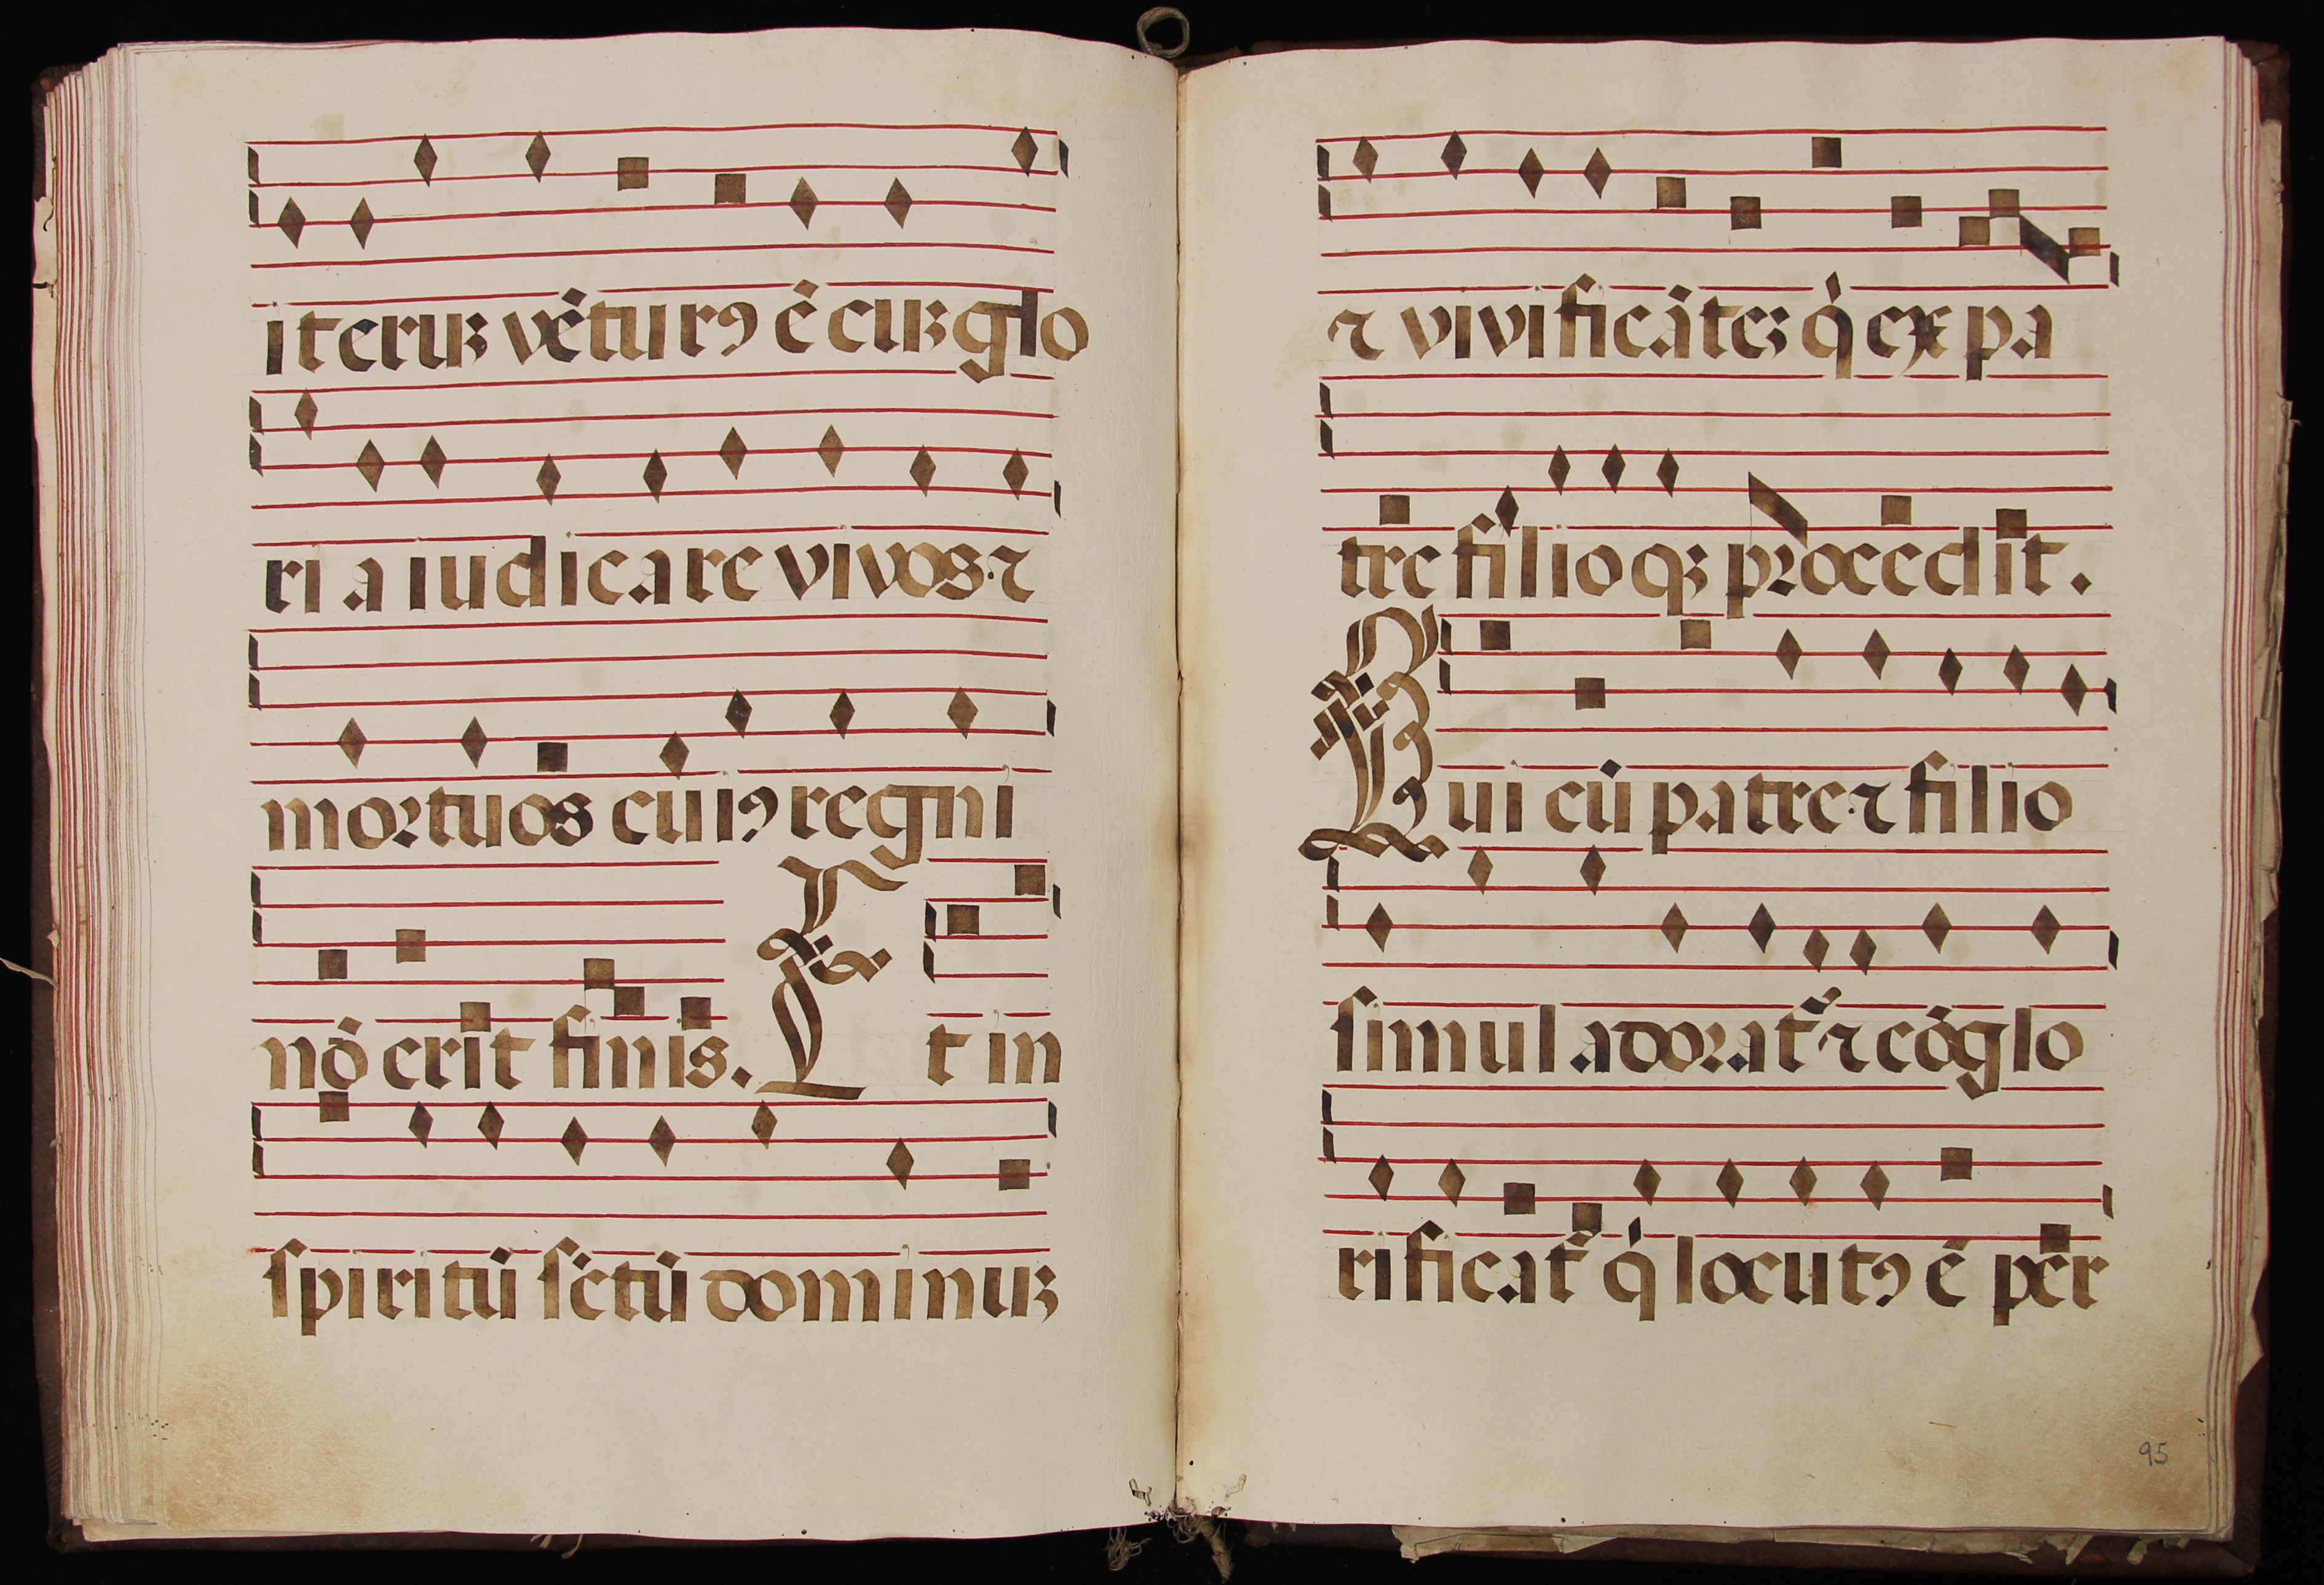 iteruꝫ vēturꝯ ē cuꝫ glo
ri a iudicare vivos ⁊
mortuos cuiꝯ regni
nō erit finis. Et in
spiritū sctū dominuꝫ
⁊ vivificāteꝫ q̇ ex pa
tre filioqꝫ procedit.
Qui cū patre ⁊ filio
simul adorat᷑ ⁊ cōglo
rificat᷑ q̇ locutꝯ ē per
95